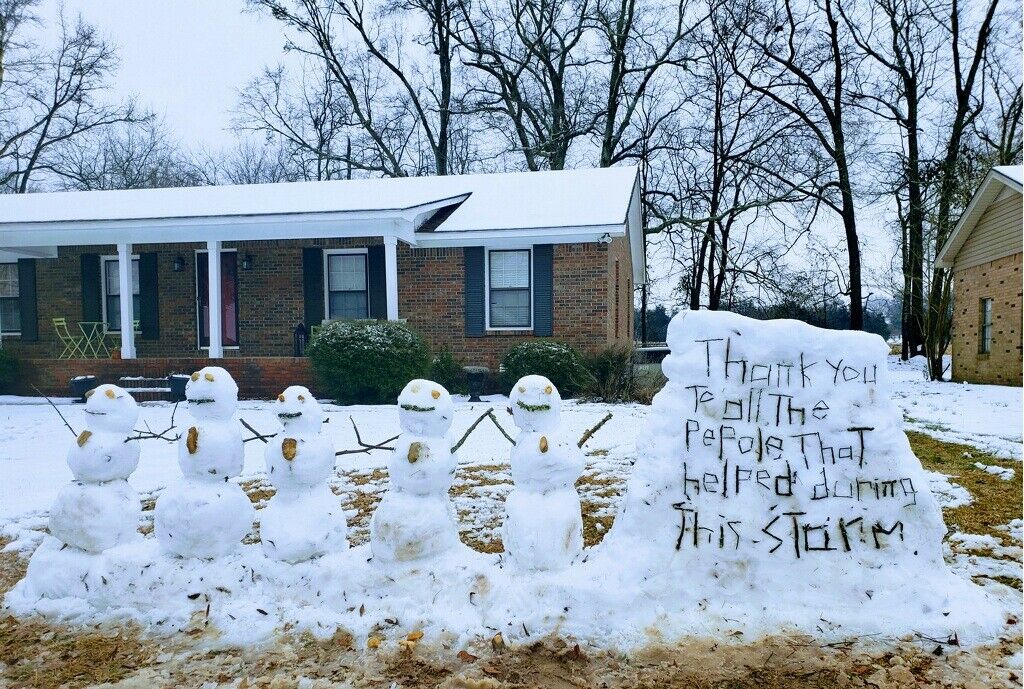 Thank you
To all The
Pepole That
helped during
This storm.